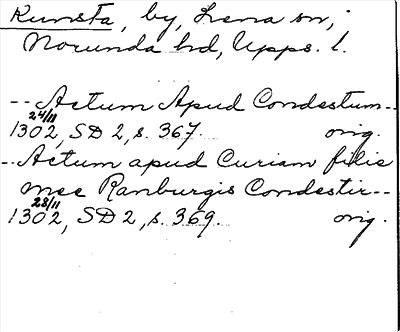 Kunsta, by, Lena sn,
Norunda hd, Upps. l.
-- Actum Apud Condestum --
24/11
1302, SD 2, s. 367. orig.
-- Actum apud Curiam filie
mee Ranburgis Condestir --
28/11
1302, SD 2, s. 369. orig.